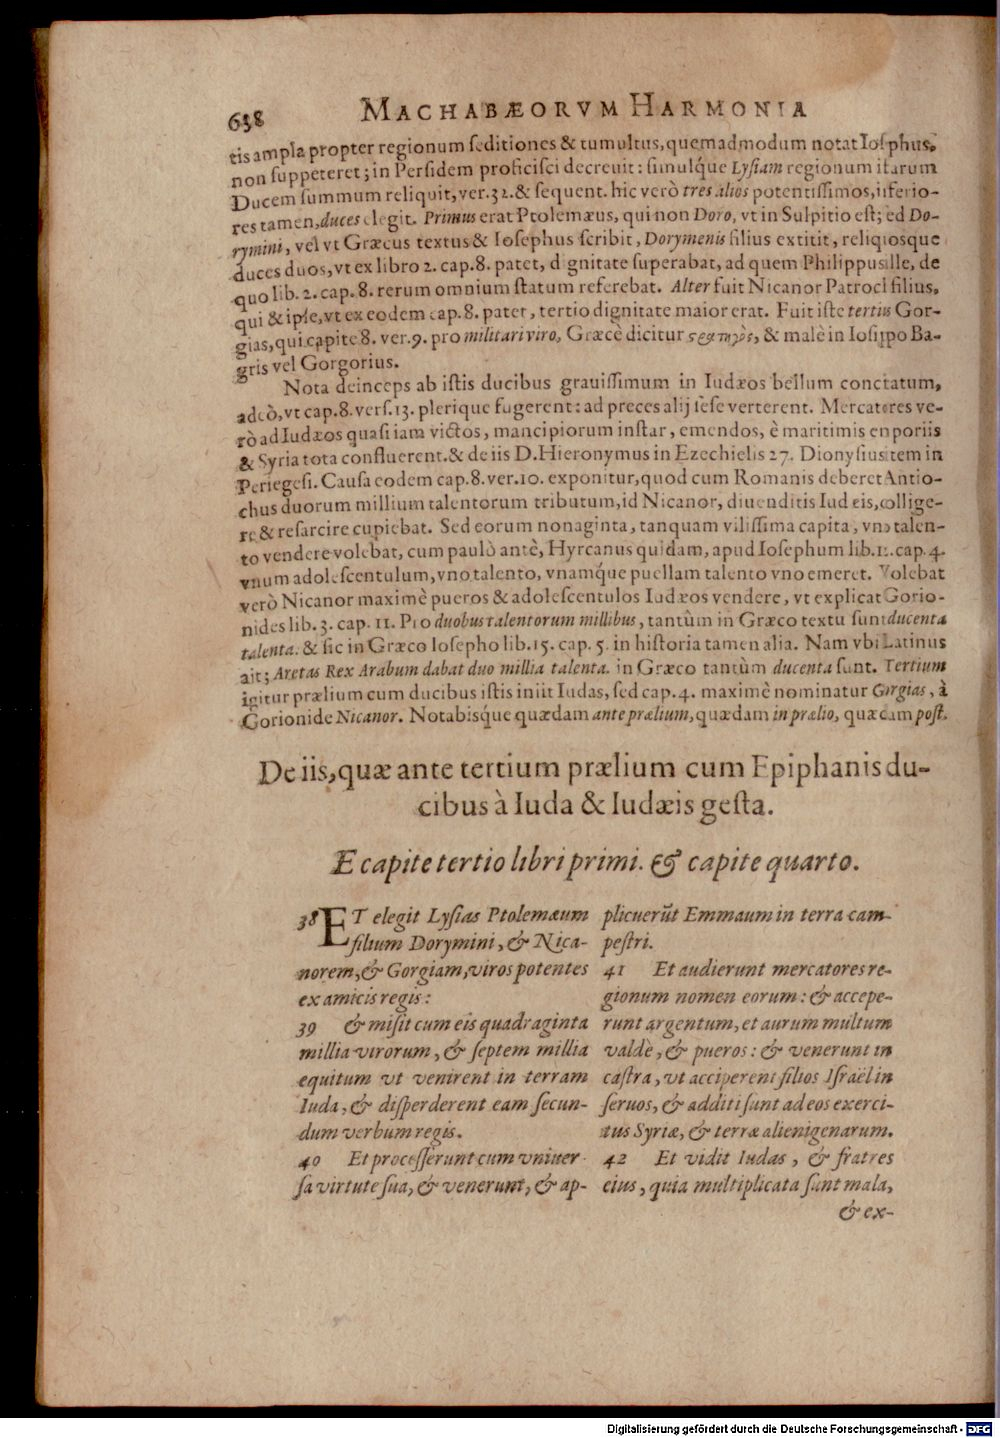 638 MACHABÆORVM HARMONIA
tis ampla propter regionum ſeditiones & tumultus, quemadmodum notat Ioſephus,
non ſuppeteret; in Perſidem proficiſci decreuit: ſimulq́ue Lyſiam regionum iſtarum
Ducem ſummum reliquit, ver. 32. & ſequent. hic verò tres alios potentiſſimos, inferio-
res tamen, duces elegit. Primus erat Ptolemæus, qui non Doro, vt in Sulpitio eſt; ſed Do-
rymini, vel vt Græcus textus & Ioſephus ſcribit, Dorymenis filius extitit, reliquosque
duces duos, vt ex libro 2. cap. 8. patet, dignitate ſuperabat, ad quem Philippus ille, de
quo lib. 2. cap. 8. rerum omnium ſtatum referebat. Alter fuit Nicanor Patrocl filius,
qui & ipſe, vt ex eodem cap. 8. patet, tertio dignitate maior erat. Fuit iſte tertius Gor-
gias, qui capite 8. ver. 9. pro militari viro, Græcè dicitur & malè in Ioſippo Ba-
gris vel Gorgorius.
Nota deinceps ab iſtis ducibus grauiſſimum in Iudæos bellum conctatum,
adeò, vt cap. 8. verſ. 13. plerique fugerent: ad preces alij ſeſe verterent. Mercatores ve-
rò ad Iudæos quaſi iam victos, mancipiorum inſtar, emendos, è maritimis emporiis
& Syria tota confluerent. & de iis D. Hieronymus in Ezechielis 27. Dionyſius item in
Periegeſi. Cauſa eodem cap. 8. ver. 10. exponitur, quod cum Romanis deberet Antio-
chus duorum millium talentorum tributum, id Nicanor, diuenditis Iudæis, collige-
re & reſarcire cupiebat. Sed eorum nonaginta, tanquam viliſſima capita, vno talen-
to vendere volebat, cum paulò antè, Hyrcanus quidam, apud Ioſephum lib. 12. cap. 4.
vnum adoleſcentulum, vno talento, vnamq́ue puellam talento vno emeret. Volebat
verò Nicanor maximè pueros & adoleſcentulos Iudæos vendere, vt explicat Gorio-
nides lib. 3. cap. 11. Pro duobus talentorum millibus, tantùm in Græco textu ſunt ducenta
talenta. & ſic in Græco Ioſepho lib. 15. cap. 5. in hiſtoria tamen alia. Nam vbi Latinus
ait; Aretas Rex Arabum dabat duo millia talenta. in Græco tantùm ducenta ſunt. Tertium
igitur prælium cum ducibus iſtis iniit Iudas, ſed cap. 4. maximè nominatur Gorgias, à
Gorionide Nicanor. Notabisq́ue quædam ante prælium, quædam in prælio, quædam poſt.
De iis, quæ ante tertium prælium cum Epiphanis du-
cibus à Iuda & Iudæis geſta.
E capite tertio libri primi. & capite quarto.
38 ET elegit Lyſias Ptolemæum
filium Dorymini, & Nica-
norem, & Gorgiam, viros potentes
ex amicis regis:
39 & miſit cum eis quadraginta
millia virorum, & ſeptem millia
equitum vt venirent in terram
Iuda, & diſperderent eam ſecun-
dum verbum regis.
40 Et proceſſerunt cum vniuer-
ſa virtute ſua, & venerunt, & ap-
plicuerūt Emmaum in terra cam-
peſtri.
41 Et audierunt mercatores re-
gionum nomen eorum: & accepe-
runt argentum, et aurum multum
valdè, & pueros: & venerunt in
caſtra, vt acciperent filios Iſraël in
ſeruos, & additi ſunt ad eos exerci-
tus Syriæ, & terræ alienigenarum.
42 Et vidit Iudas, & fratres
eius, quia multiplicata ſunt mala,
& ex-
Digitalisierung gefördert durch die Deutsche Forschungsgemeinschaft - DFG